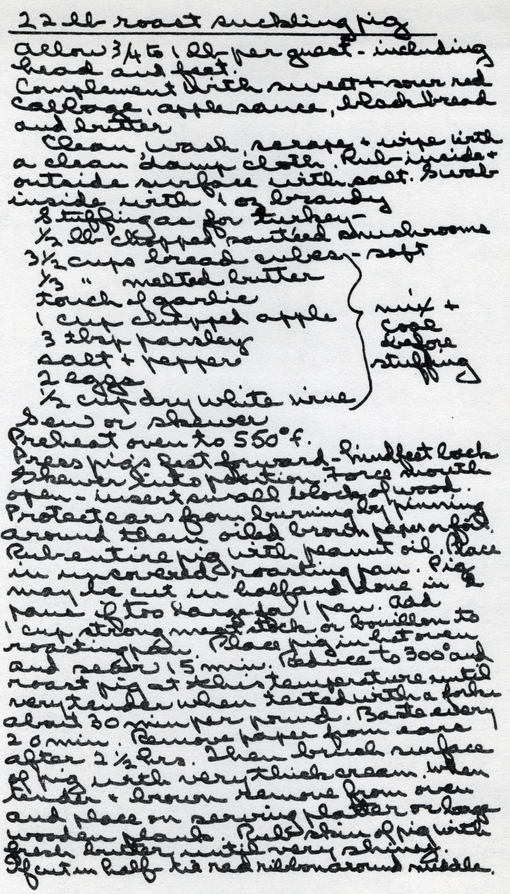 22 lb roast suckling pig
Allow 3/4 to 1 lb per guest - including
head and feet.
Complement with sweet + sour red
cabbage, applesauce, black bread
and butter
Clean, wash, scrape + wipe with
a clean damp cloth. Rub inside +
outside surface with salt. Swab
inside with 1 oz brandy
Stuffing as for turkey -
1/2 lb chopped sautéed mushrooms
3 1/2 cups bread cubes - soft
1/3 " melted butter
touch of garlic
1 cup chopped apple
3 tbsp parsley
salt + pepper
2 eggs
1/2 cup dry white wine
mix +
cool
before
stuffing
Sew or skewer
Preheat oven to 550° f.
Press pig's feet forward - hind feet back
Skewer into position. Force mouth
open - insert small block of wood.
Protect ears from burning by pinning
around them oiled brown paper or foil.
Rub entire pig with peanut oil. Place
in uncovered roasting pan. Pig
may be cut in half and done in 2
pans if too large for 1 pan. Add
1 cup strong meat stock or bouillon to
roasting pan. Place pig in hot oven
and sear 15 min. Reduce to 300° and
roast pig at this temperature until
very tender when tested with a fork
about 30 min per pound. Baste every
20 min. Remove paper from ears
after 2 1/2 hrs. Then brush surface
of pig with very thick cream. When
tender + brown remove from oven
and place on serving platter or large
wooden plank. Rub skin of pig with
fresh butter until very shiny.
If cut in half - tie red ribbon around middle.